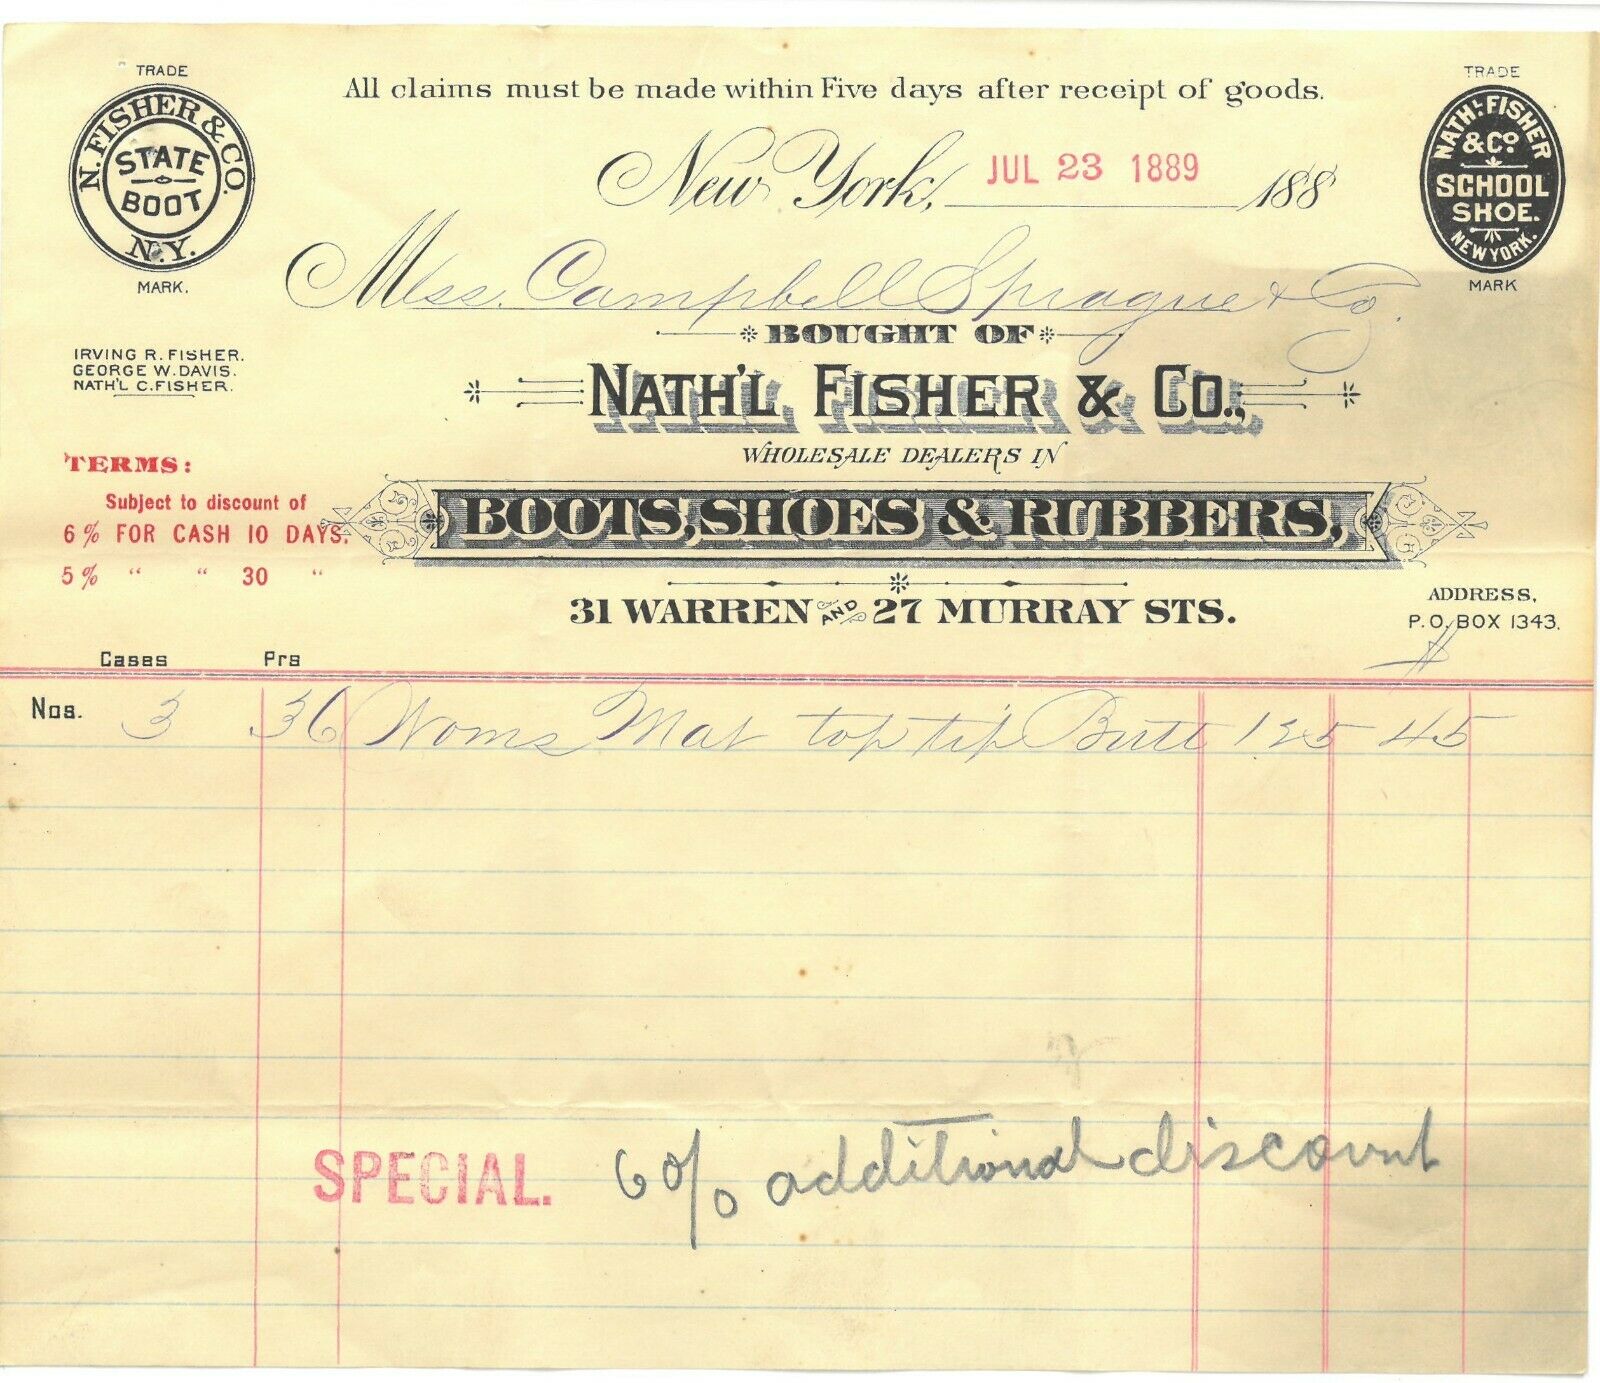 TRADE
N. FISHER & CO.
STATE
BOOT
N.Y.
MARK.
All claims must be made within Five days after receipt of goods.
TRADE
NATH'L FISHER
& CO.
SCHOOL
SHOE.
NEW YORK.
MARK
New York, JUL 23 1889 188
Mess. Campbell Sprague & Co.
BOUGHT OF
IRVING R. FISHER.
GEORGE W. DAVIS.
NATH'L C. FISHER.
NATH'L FISHER & CO.,
WHOLESALE DEALERS IN
TERMS:
Subject to discount of
6% FOR CASH 10 DAYS.
5% " " 30 "
BOOTS, SHOES & RUBBERS,
31 WARREN AND 27 MURRAY STS.
ADDRESS,
P.O. BOX 1343.
$
Cases Prs
Nos. 3 36 Woms Mat top tip Butt 125 45
SPECIAL. 6% additional discount